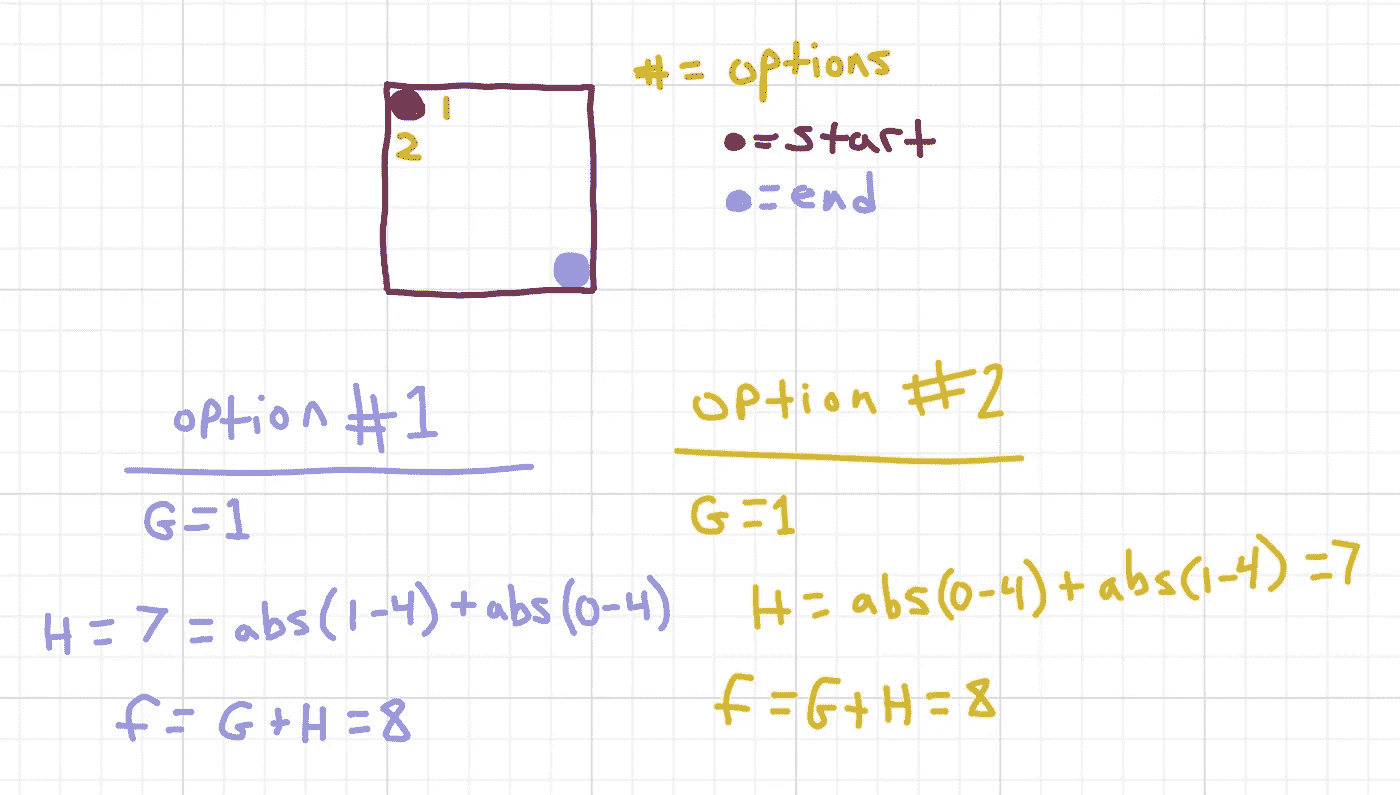 # = options
1
● = start
2
● = end
option #1
G = 1
H = 7 = abs(1-4) + abs(0-4)
f = G + H = 8
option #2
G = 1
H = abs(0-4) + abs(1-4) = 7
f = G + H = 8